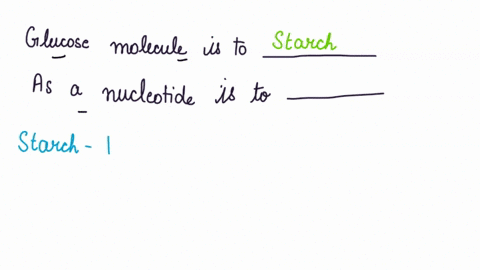 Glucose molecule is to Starch
As a nucleotide is to
Starch -